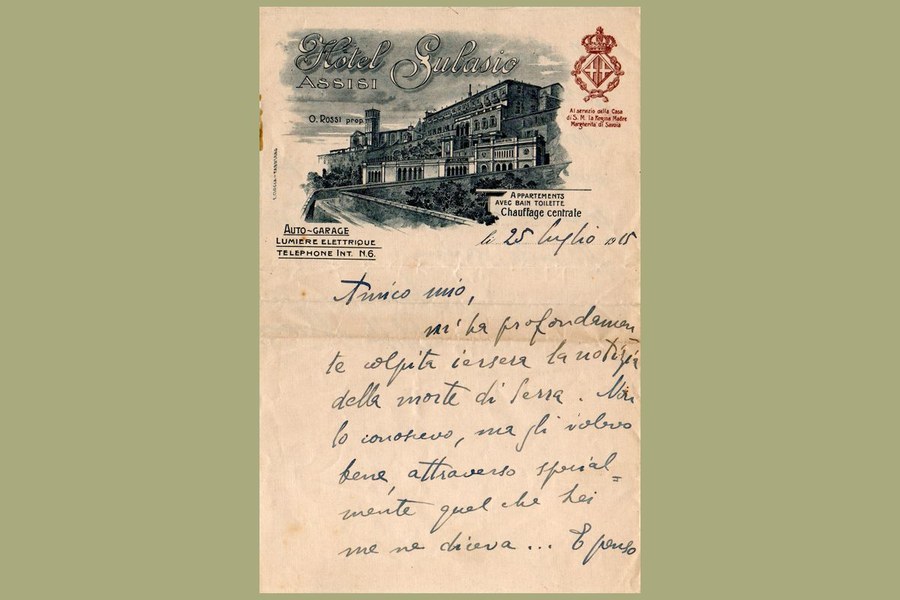 Hôtel Subasio
ASSISI
O. ROSSI prop.
Al servizio della Casa
di S. M. la Regina Madre
Margherita di Savoia
APPARTEMENTS
AVEC BAIN TOILETTE
Chauffage centrale
AUTO-GARAGE
LUMIÈRE ELETTRIQUE
TELEPHONE INT. N.6.
li 25 luglio 915
Amico mio,
mi ha profondamen
te colpita iersera la notizia
della morte di Serra. Non
lo conoscevo, ma gli volevo
bene, attraverso special=
mente quel che Lei
me ne diceva... E penso